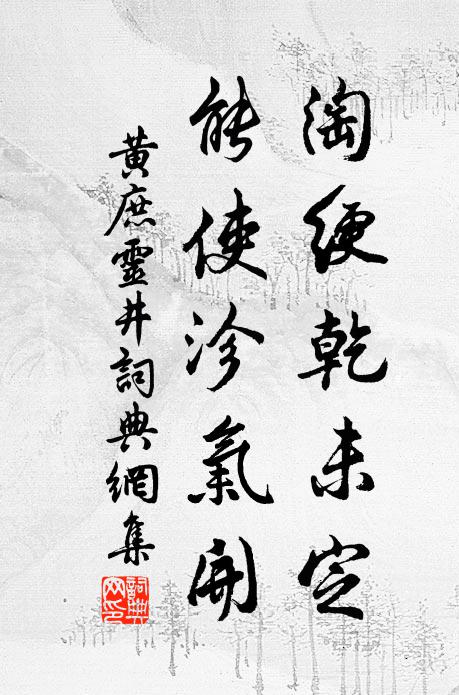 淘綆乾未定
能使沴氣開
黃庶靈井詞典網集
詞典
网印